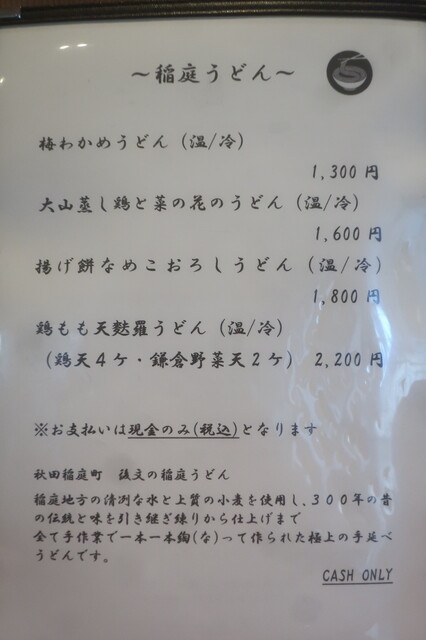 ～稲庭うどん～
梅わかめうどん (温/冷)
1,300 円
大山蒸し鶏と菜の花のうどん (温/冷)
1,600 円
揚げ餅なめこおろしうどん (温/冷)
1,800 円
鶏もも天麩羅うどん (温/冷)
(鶏天４ケ・鎌倉野菜天２ケ) 2,200 円
※お支払いは現金のみ(税込)となります
秋田稲庭町 後文の稲庭うどん
稲庭地方の清冽な水と上質の小麦を使用し、３００年の昔
の伝統と味を引き継ぎ練りから仕上げまで
全て手作業で一本一本綯(な)って作られた極上の手延べ
うどんです。
CASH ONLY